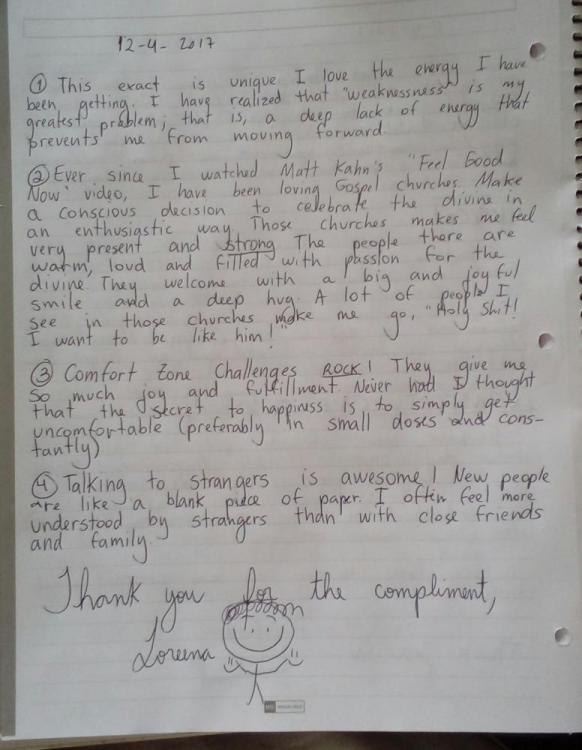 12-4-2017
① This exact is unique I love the energy I have
been getting. I have realized that "weaknessness" is my
greatest problem; that is, a deep lack of energy that
prevents me from moving forward.
② Ever since I watched Matt Kahn's "Feel Good
Now" video, I have been loving Gospel churches. Make
a conscious decision to celebrate the divine in
an enthusiastic way. Those churches makes me feel
very present and strong. The people there are
warm, loud and filled with passion for the
divine. They welcome with a big and joyful
smile and a deep hug. A lot of people I
see in those churches make me go, "Holy Shit!
I want to be like him!"
③ Comfort Zone Challenges ROCK! They give me
so much joy and fulfillment. Never had I thought
that the secret to happiness is to simply get
uncomfortable (preferably in small doses and cons-
tantly)
④ Talking to strangers is awesome! New people
are like a blank piece of paper. I often feel more
understood by strangers than with close friends
and family.
Thank you for the compliment,
Loreena